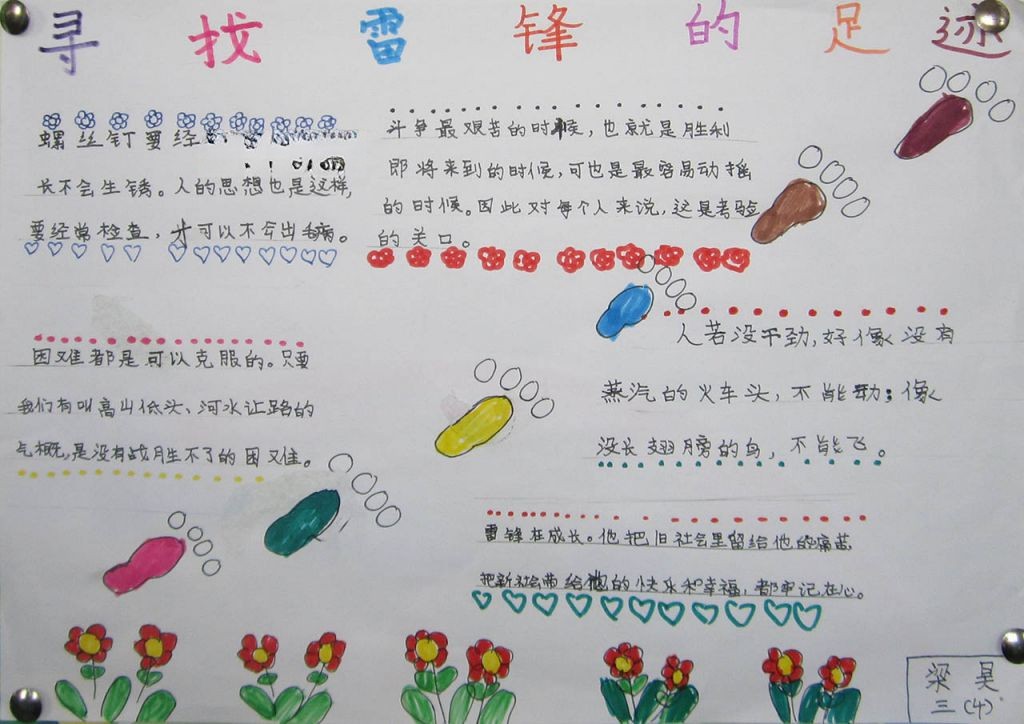 寻找雷锋的足迹
螺丝钉要经
长不会生锈。人的思想也是这样,
要经常检查,才可以不会出毛病。
斗争最艰苦的时候,也就是胜利
即将来到的时候,可也是最容易动摇
的时候。因此对每个人来说,这是考验
的关口。
人若没干劲,好像没有
蒸汽的火车头,不能动;像
没长翅膀的鸟,不能飞。
困难都是可以克服的。只要
我们有叫高山低头、河水让路的
气概,是没有战胜不了的困难。
雷锋在成长。他把旧社会里留给他的痛苦
把新社会带给他的快乐和幸福,都牢记在心。
梁昊
三(4)